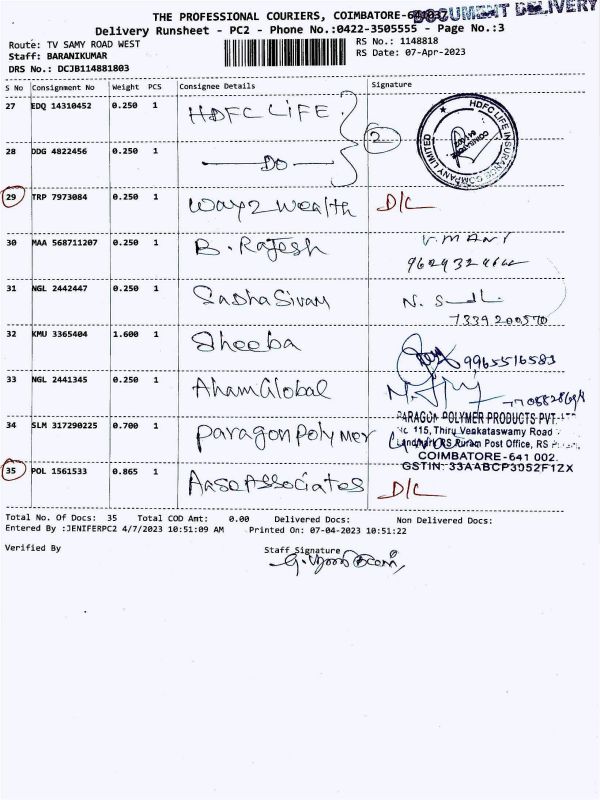 THE PROFESSIONAL COURIERS, COIMBATORE-
DOCUMENT DELIVERY
Delivery Runsheet - PC2 - Phone No.:0422-3505555 - Page No.:3
Route: TV SAMY ROAD WEST
RS No.: 1148818
Staff: BARANIKUMAR
RS Date: 07-Apr-2023
DRS No.: DCJB114881803
S No Consignment No Weight PCS Consignee Details Signature
27 EDQ 14310452 0.250 1 HDFC LIFE
2
HDFC LIFE INSURANCE COMPANY LIMITED
28 DDG 4822456 0.250 1 DO
29 TRP 7973084 0.250 1 Way2Wealth D/L
30 MAA 568711207 0.250 1 B. Rajesh V. MANI
31 NGL 2442447 0.250 1 Sadhasivam N.
7339200570
32 KMU 3365404 1.600 1 Sheeba 9965516583
33 NGL 2441345 0.250 1 Aham Global
34 SLM 317290225 0.700 1 Paragon Polymer
PARAGON POLYMER PRODUCTS PVT.
115, Thiru Venkataswamy Road
Post Office, RS
COIMBATORE-641 002.
GSTIN: 33AABCP3052F1ZX
35 POL 1561533 0.865 1 Aaso Associates D/L
Total No. Of Docs: 35 Total COD Amt: 0.00 Delivered Docs: Non Delivered Docs:
Entered By :JENIFERPC2 4/7/2023 10:51:09 AM Printed On: 07-04-2023 10:51:22
Verified By Staff Signature